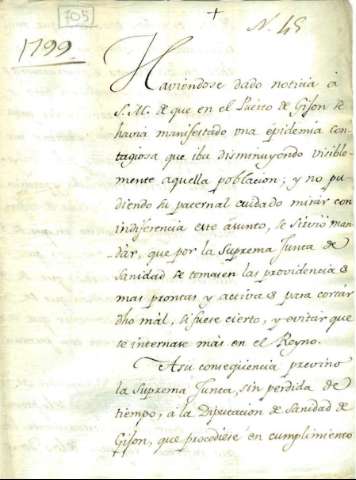 705
+
N. 45
1799
Haviendose dado noticia á
S. M. de que en el Puerto de Gijon se
havia manifestado una epidemia con-
tagiosa que iba disminuyendo visible-
mente aquella poblacion; y no pu-
diendo su paternal cuidado mirar con
indiferencia este asunto, se sirvió man-
dar, que por la Suprema Junta de
Sanidad se tomasen las providencias
mas prontas y activas para cortar
dho mál, si fuese cierto, y evitar que
se internase más en el Reyno.
A su conseqüencia previno
la Suprema Junta, sin perdida de
tiempo, á la Diputacion de Sanidad de
Gijon, que procediese en cumplimiento